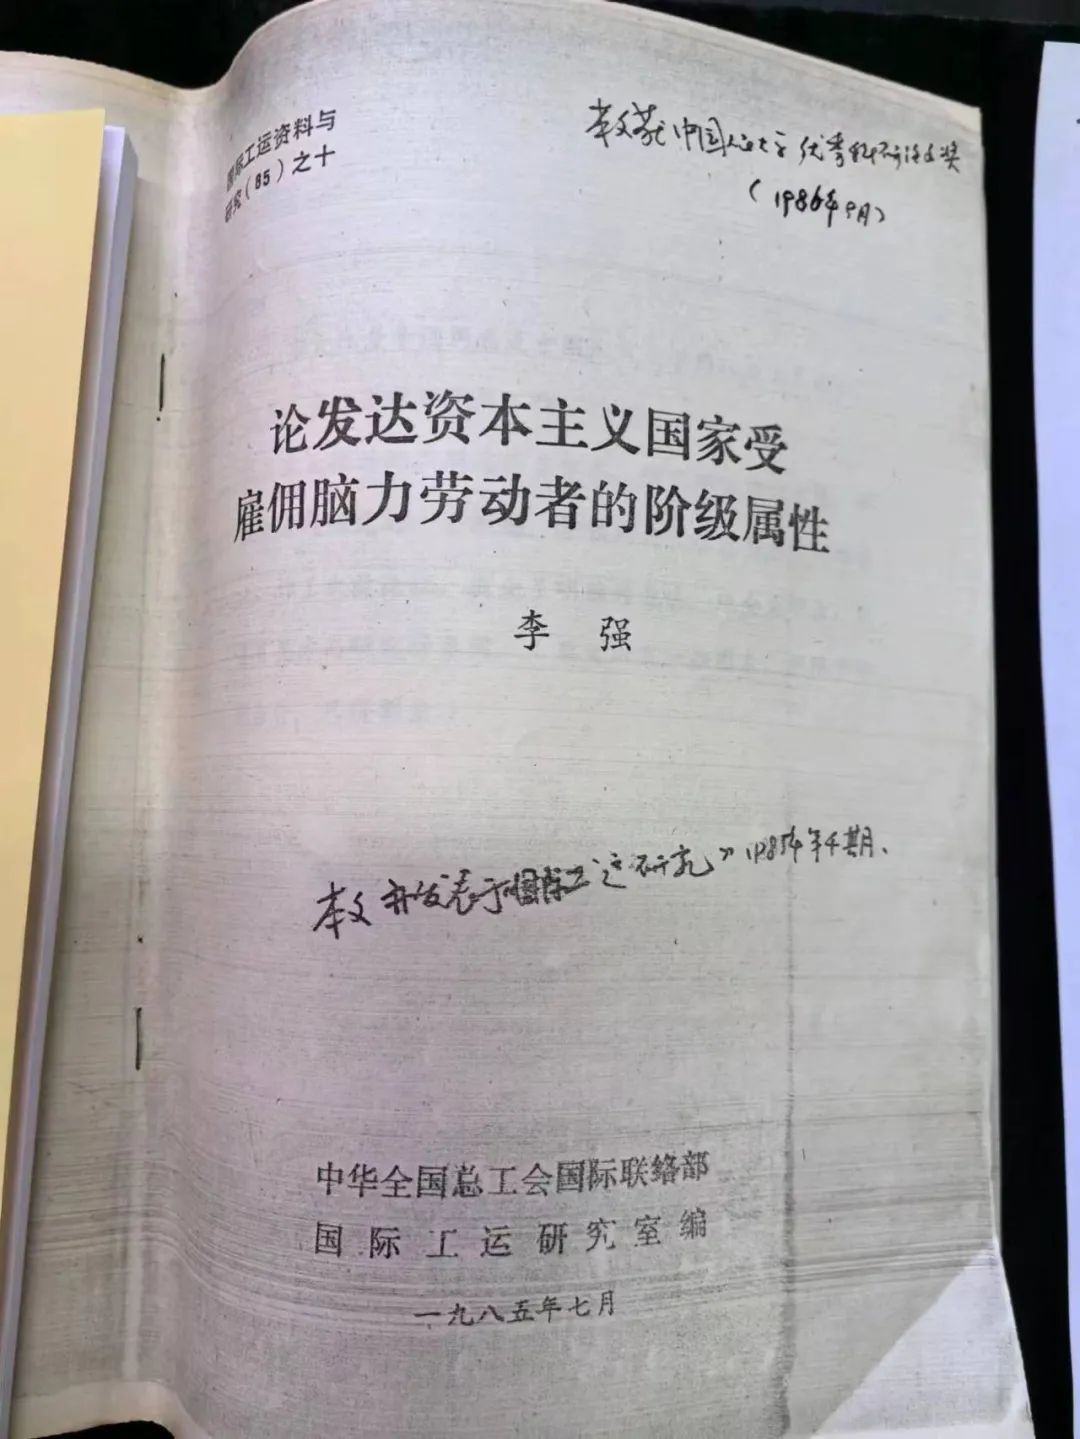 国际工运资料与
研究（85）之十
本文获中国人民大学优秀科研论文奖
（1986年9月）
论发达资本主义国家受
雇佣脑力劳动者的阶级属性
李 强
本文并发表于《国际工运研究》1985年第4期.
中华全国总工会国际联络部
国际工运研究室编
一九八五年七月